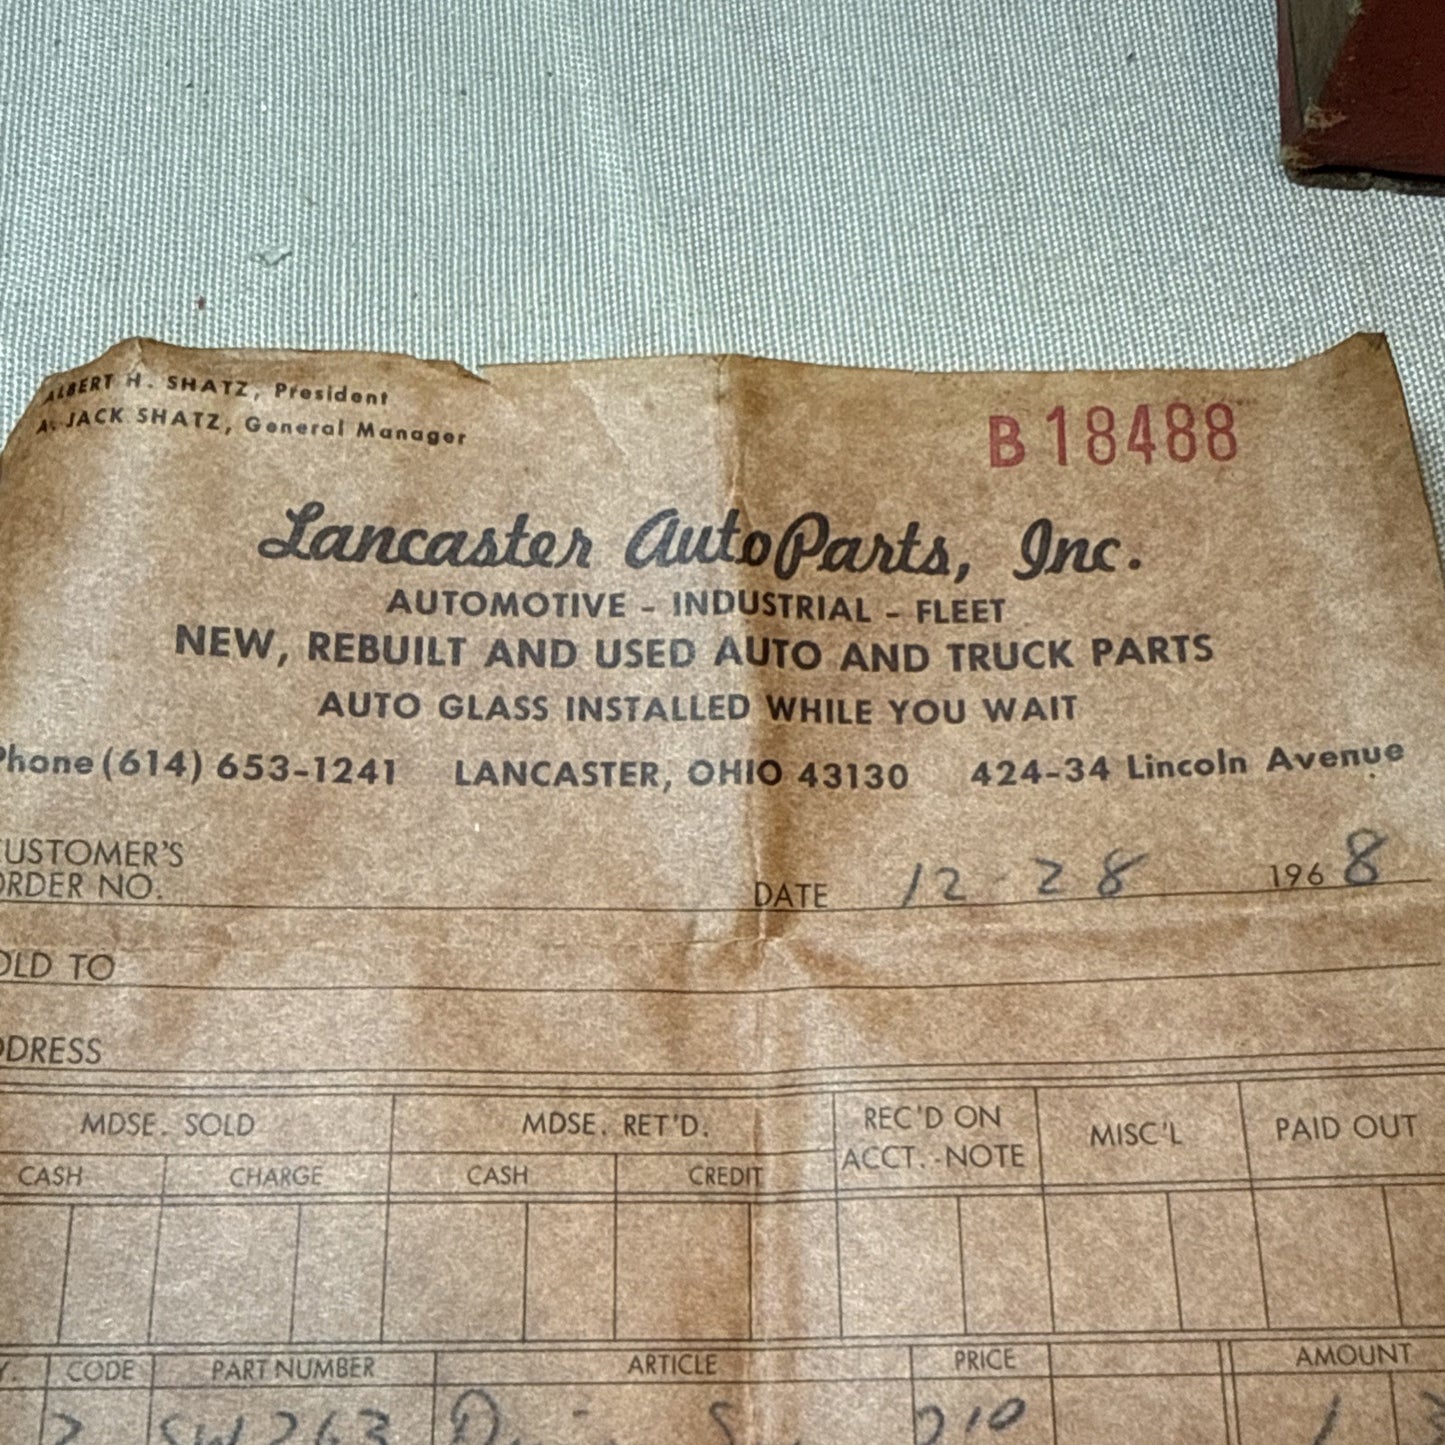 ALBERT H. SHATZ, President
A. JACK SHATZ, General Manager
B18488
Lancaster Auto Parts, Inc.
AUTOMOTIVE - INDUSTRIAL - FLEET
NEW, REBUILT AND USED AUTO AND TRUCK PARTS
AUTO GLASS INSTALLED WHILE YOU WAIT
Phone (614) 653-1241 LANCASTER, OHIO 43130 424-34 Lincoln Avenue
CUSTOMER'S
ORDER NO. DATE 12-28 1968
OLD TO
DDRESS
MDSE. SOLD MDSE. RET'D. REC'D ON ACCT.-NOTE MISC'L PAID OUT
CASH CHARGE CASH CREDIT
Y. CODE PART NUMBER ARTICLE PRICE AMOUNT
2 SW263